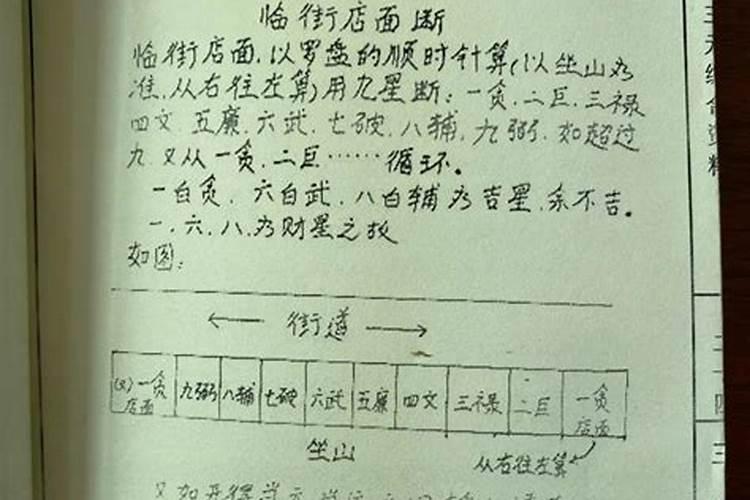 临街店面断
临街店面，以罗盘的顺时针算（以坐山为
准，从右往左算）用九星断：一贪．二巨．三禄
四文 五廉．六武．七破．八辅．九弼．如超过
九．又从一贪．二巨……循环。
一白贪．六白武．八白辅为吉星．余不吉。
一．六．八．为财星之故
如图：
← 街道 →
(又)一贪店面 九弼 八辅 七破 六武 五廉 四文 三禄 二巨 一贪店面
坐山
从右往左算
三元综合资料